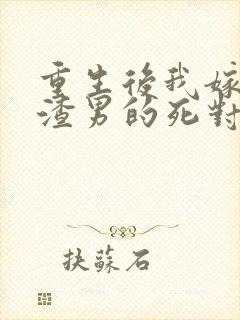 重生後我嫁
渣男的死對
扶蘇石